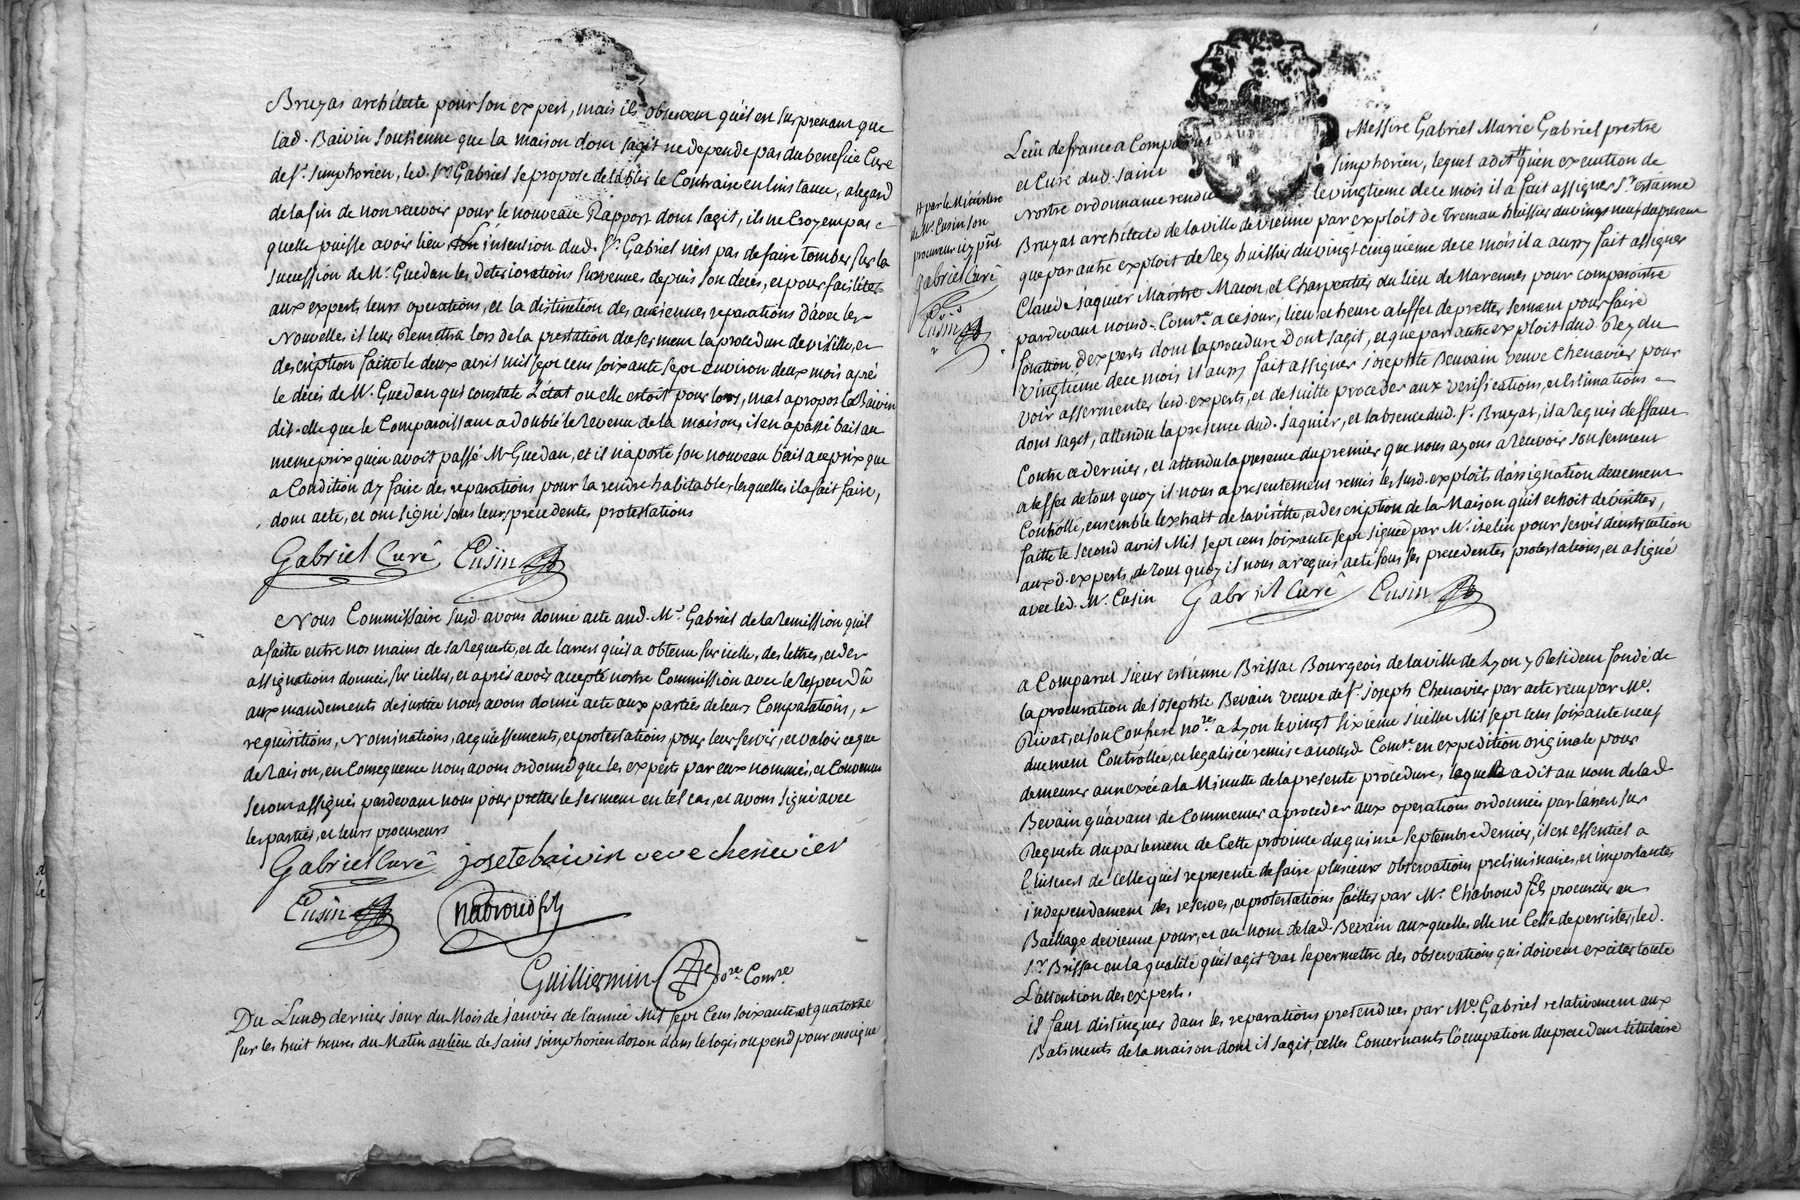 Bruyas architecte pour son expert, mais ils observent qu'il en surprenant que
lad. Baivin soutienne que la maison dont sagit ne depende pas du benefice Cure
de St. Simphorien, led. Sr Gabriel se propose detablir le Contraire en linstance, a legard
de la fin de non recevoir pour le nouveau Rapport dont sagit, ils ne croyent pas
quelle puisse avoir lieu lintention dud. Sr. Gabriel nest pas de faire tomber sur la
succession de Mr. Guedan les deteriorations survenues depuis son deces, et pour faciliter
aux experts leurs operations, et la distinction des anciennes reparations davec les
Nouvelles il leur Remettra lors de la prestation du serment la procedure de visitte, et
description faitte le deux avril mil sept cent soixante sept environ deux mois après
le décès de Mr. Guedan qui constate L'état ou elle estoit pour lors, mal a propos la Baivin
dit-elle que le Comparoissant a doublé le Revenu de la maison, il en a passé bail au
meme prix qu'en avoit passé Mr Guedan, et il n'a porté son nouveau bail a ce prix que
a Condition d'y faire des reparations pour la rendre habitable, lesquelles il a fait faire,
dont acte, et ont signé sous leurs precedentes protestations
Gabriel Curé Cusin
Nous Commissaire susd. avons donné acte aud. Mr. Gabriel de la Remission qu'il
a faitte entre nos mains de sa Requeste, et de larrest qu'il a obtenu sur icelle, des lettres, et des
assignations données sur icelles, et après avoir accepté nostre Commission avec le Respect Dû
aux mandements de justice nous avons donné acte aux parties de leurs Comparutions,
requisitions, Nominations, acquiessements, et protestations, pour leur servir, et valoir ce que
de Raison, en Consequence nous avons ordonné que les experts par eux nommés, et Convenus
seront assignés pardevant nous pour pretter le serment en tel cas, et avons signé avec
les parties, et leurs procureurs
Gabriel Curé josete baivin veve chenevier
Cusin Chabroud fils
Guilliermin Comre
Du Lundy dernier jour du Mois de Janvier de l'année Mil sept Cent soixante et quatorze
sur les huit heures du Matin au lieu de Saint Simphorien dozon dans le logis ou pend pour enseigne
DAUPHINÉ
Lecu de france a Comparut Messire Gabriel Marie Gabriel prestre
et Curé dud. Saint Simphorien, lequel a dit # qu'en execution de
Nostre ordonnance rendue le vingtieme de ce mois il a fait assigner Sr. estienne
# par le Ministere
de Mr. Cusin son
procureur icy pnt
Gabriel Curé
Cusin
Bruyas architecte de la ville de vienne par exploit de Treman huissier du vingt neuf du present
que par autre exploit de Rey huissier du vingt cinquieme de ce mois il a aussy fait assigner
Claude Jaquier Maistre Macon, et Charpentier du lieu de Marennes pour comparoitre
pardevant nousd. Comre. a ce jour, lieu et heure a leffet de pretter serment pour faire
fonction d'experts dont la procedure Dont sagit, et que par autre exploit dud. Rey du
vingtieme de ce mois il a aussy fait assigner josephte Beuvain veuve Chenavier pour
voir assermenter lesd. experts, et de suitte proceder aux verifications, et Estimations
dont sagit, attendu la presence dud. Jaquier, et labsence dud. Sr. Bruyas, il a Requis deffaut
Contre ce dernier, et attendu la presence du premier que nous ayons a Recevoir son serment
a leffet de tout quoy il nous a presentement remis les susd. exploit d'assignation deuement
Controllé, ensemble lextrait de la visitte, et description de la Maison qu'il echoit de visitter,
faitte le second avril Mil sept cent soixante sept signée par Mr. izelin pour servir dinstruction
auxd. experts, de tout quoy il nous a requis acte sous ses precedentes protestations, et a signé
avec led. Mr. Cusin Gabriel Curé Cusin
a Comparut Sieur estienne Brissac Bourgeois de la ville de Lyon y Resident fondé de
la procuration de josephte Bevain veuve de Sr. joseph Chenavier par acte recu par Me.
Rivat, et son Confrere nores. a Lyon le vingt sixieme juillet Mil sept cent soixante neuf
duement Controllée, et legalisée remise a nousd. Comre. en expedition originale pour
demeurer annexée a la Minutte de la presente procedure, lequel a dit au nom de lad.
Bevain qu'avant de Commencer a proceder aux operations ordonnées par larrest sur
Requeste du parlement de Cette province du quinze septembre dernier, il est essentiel a
linterest de Celle qu'il represente de faire plusieurs observations preliminaires, et importantes
independament des reserves, et protestations faittes par Mr. Chabroud fils procureur au
Bailliage de vienne pour, et au nom de lad. Bevain auxquelles elle ne Cesse de persister, led.
Sr. Brissac en la qualité qu'il agit vas se permettre des observations qui doivent exciter toute
Lattention des experts.
il faut distinguer dans les reparations pretendues par Me. Gabriel relativement aux
Batiments de la maison dont il sagit, celles Concernants l'occupation du precedent titulaire